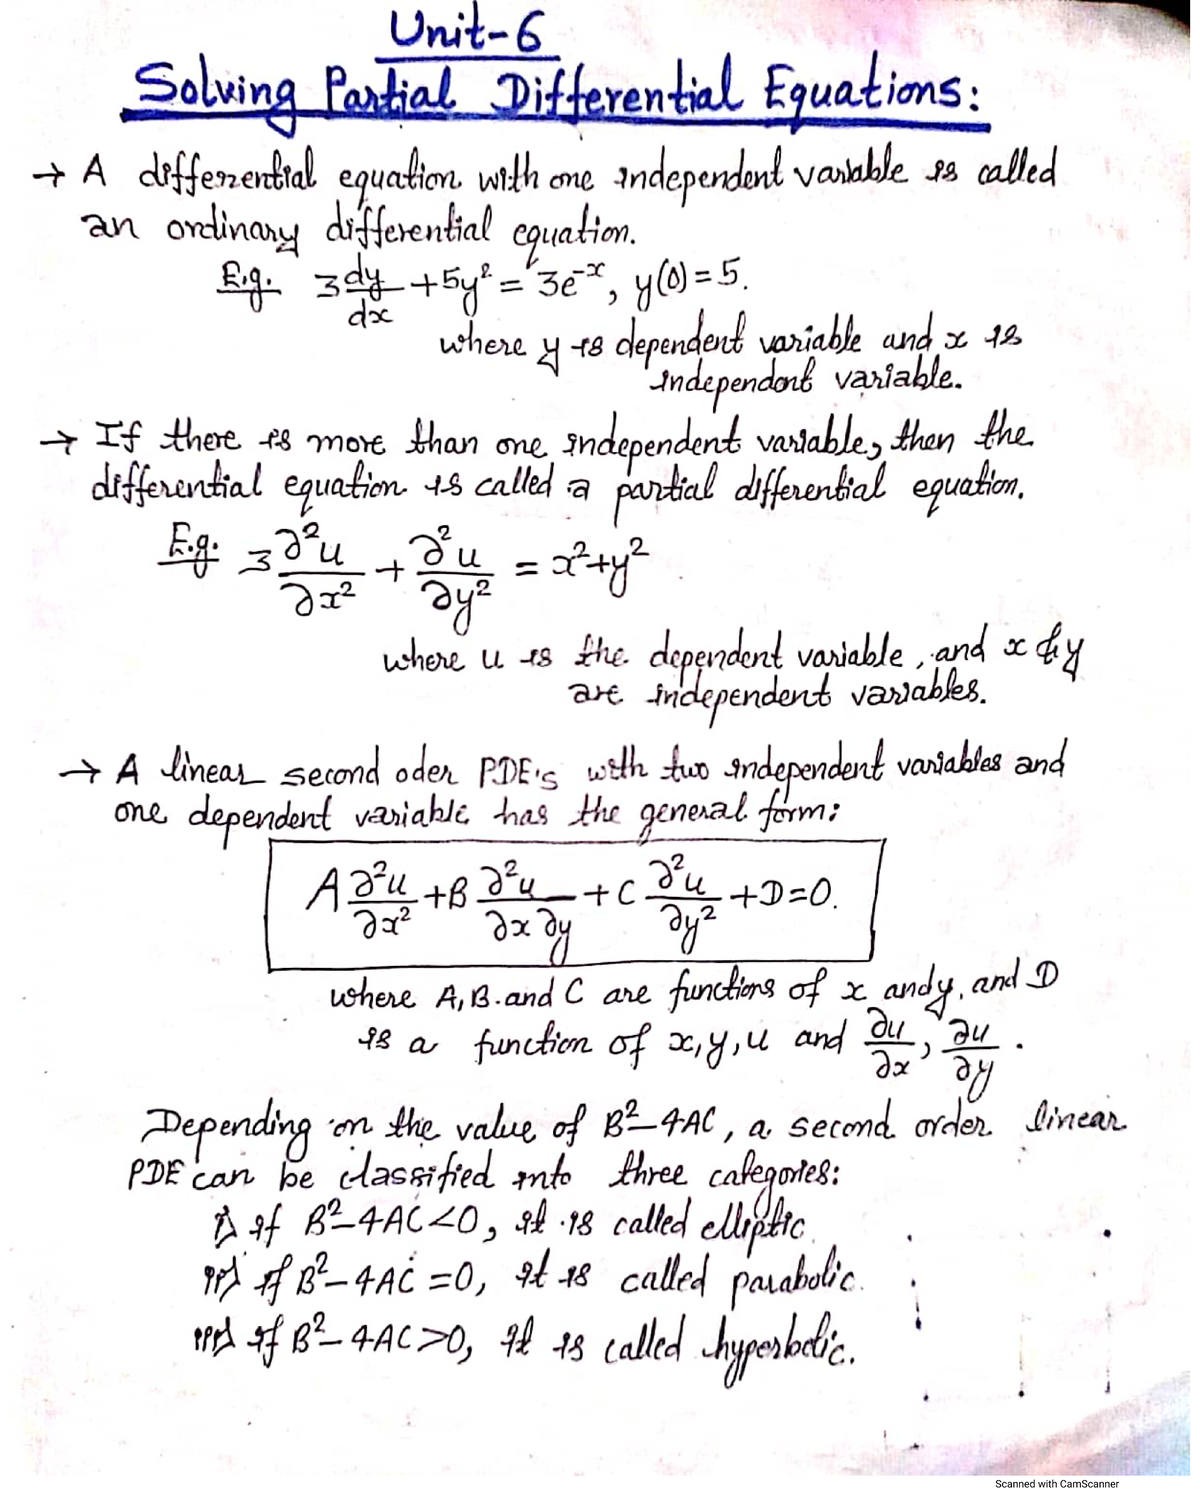 Unit-6
Solving Partial Differential Equations:
→ A differential equation with one independent variable is called
an ordinary differential equation.
E.g. 3 dy/dx + 5y² = 3e⁻ˣ, y(0) = 5.
where y is dependent variable and x is
independent variable.
→ If there is more than one independent variable, then the
differential equation is called a partial differential equation.
E.g. 3 ∂²u/∂x² + ∂²u/∂y² = x²+y²
where u is the dependent variable, and x & y
are independent variables.
→ A linear second oder PDE's with two independent variables and
one dependent variable has the general form:
A ∂²u/∂x² + B ∂²u/∂x∂y + C ∂²u/∂y² + D = 0.
where A, B and C are functions of x and y, and D
is a function of x, y, u and ∂u/∂x, ∂u/∂y.
Depending on the value of B²-4AC, a second order linear
PDE can be classified into three categories:
i) if B²-4AC<0, it is called elliptic.
ii) if B²-4AC=0, it is called parabolic.
iii) if B²-4AC>0, it is called hyperbolic.
Scanned with CamScanner